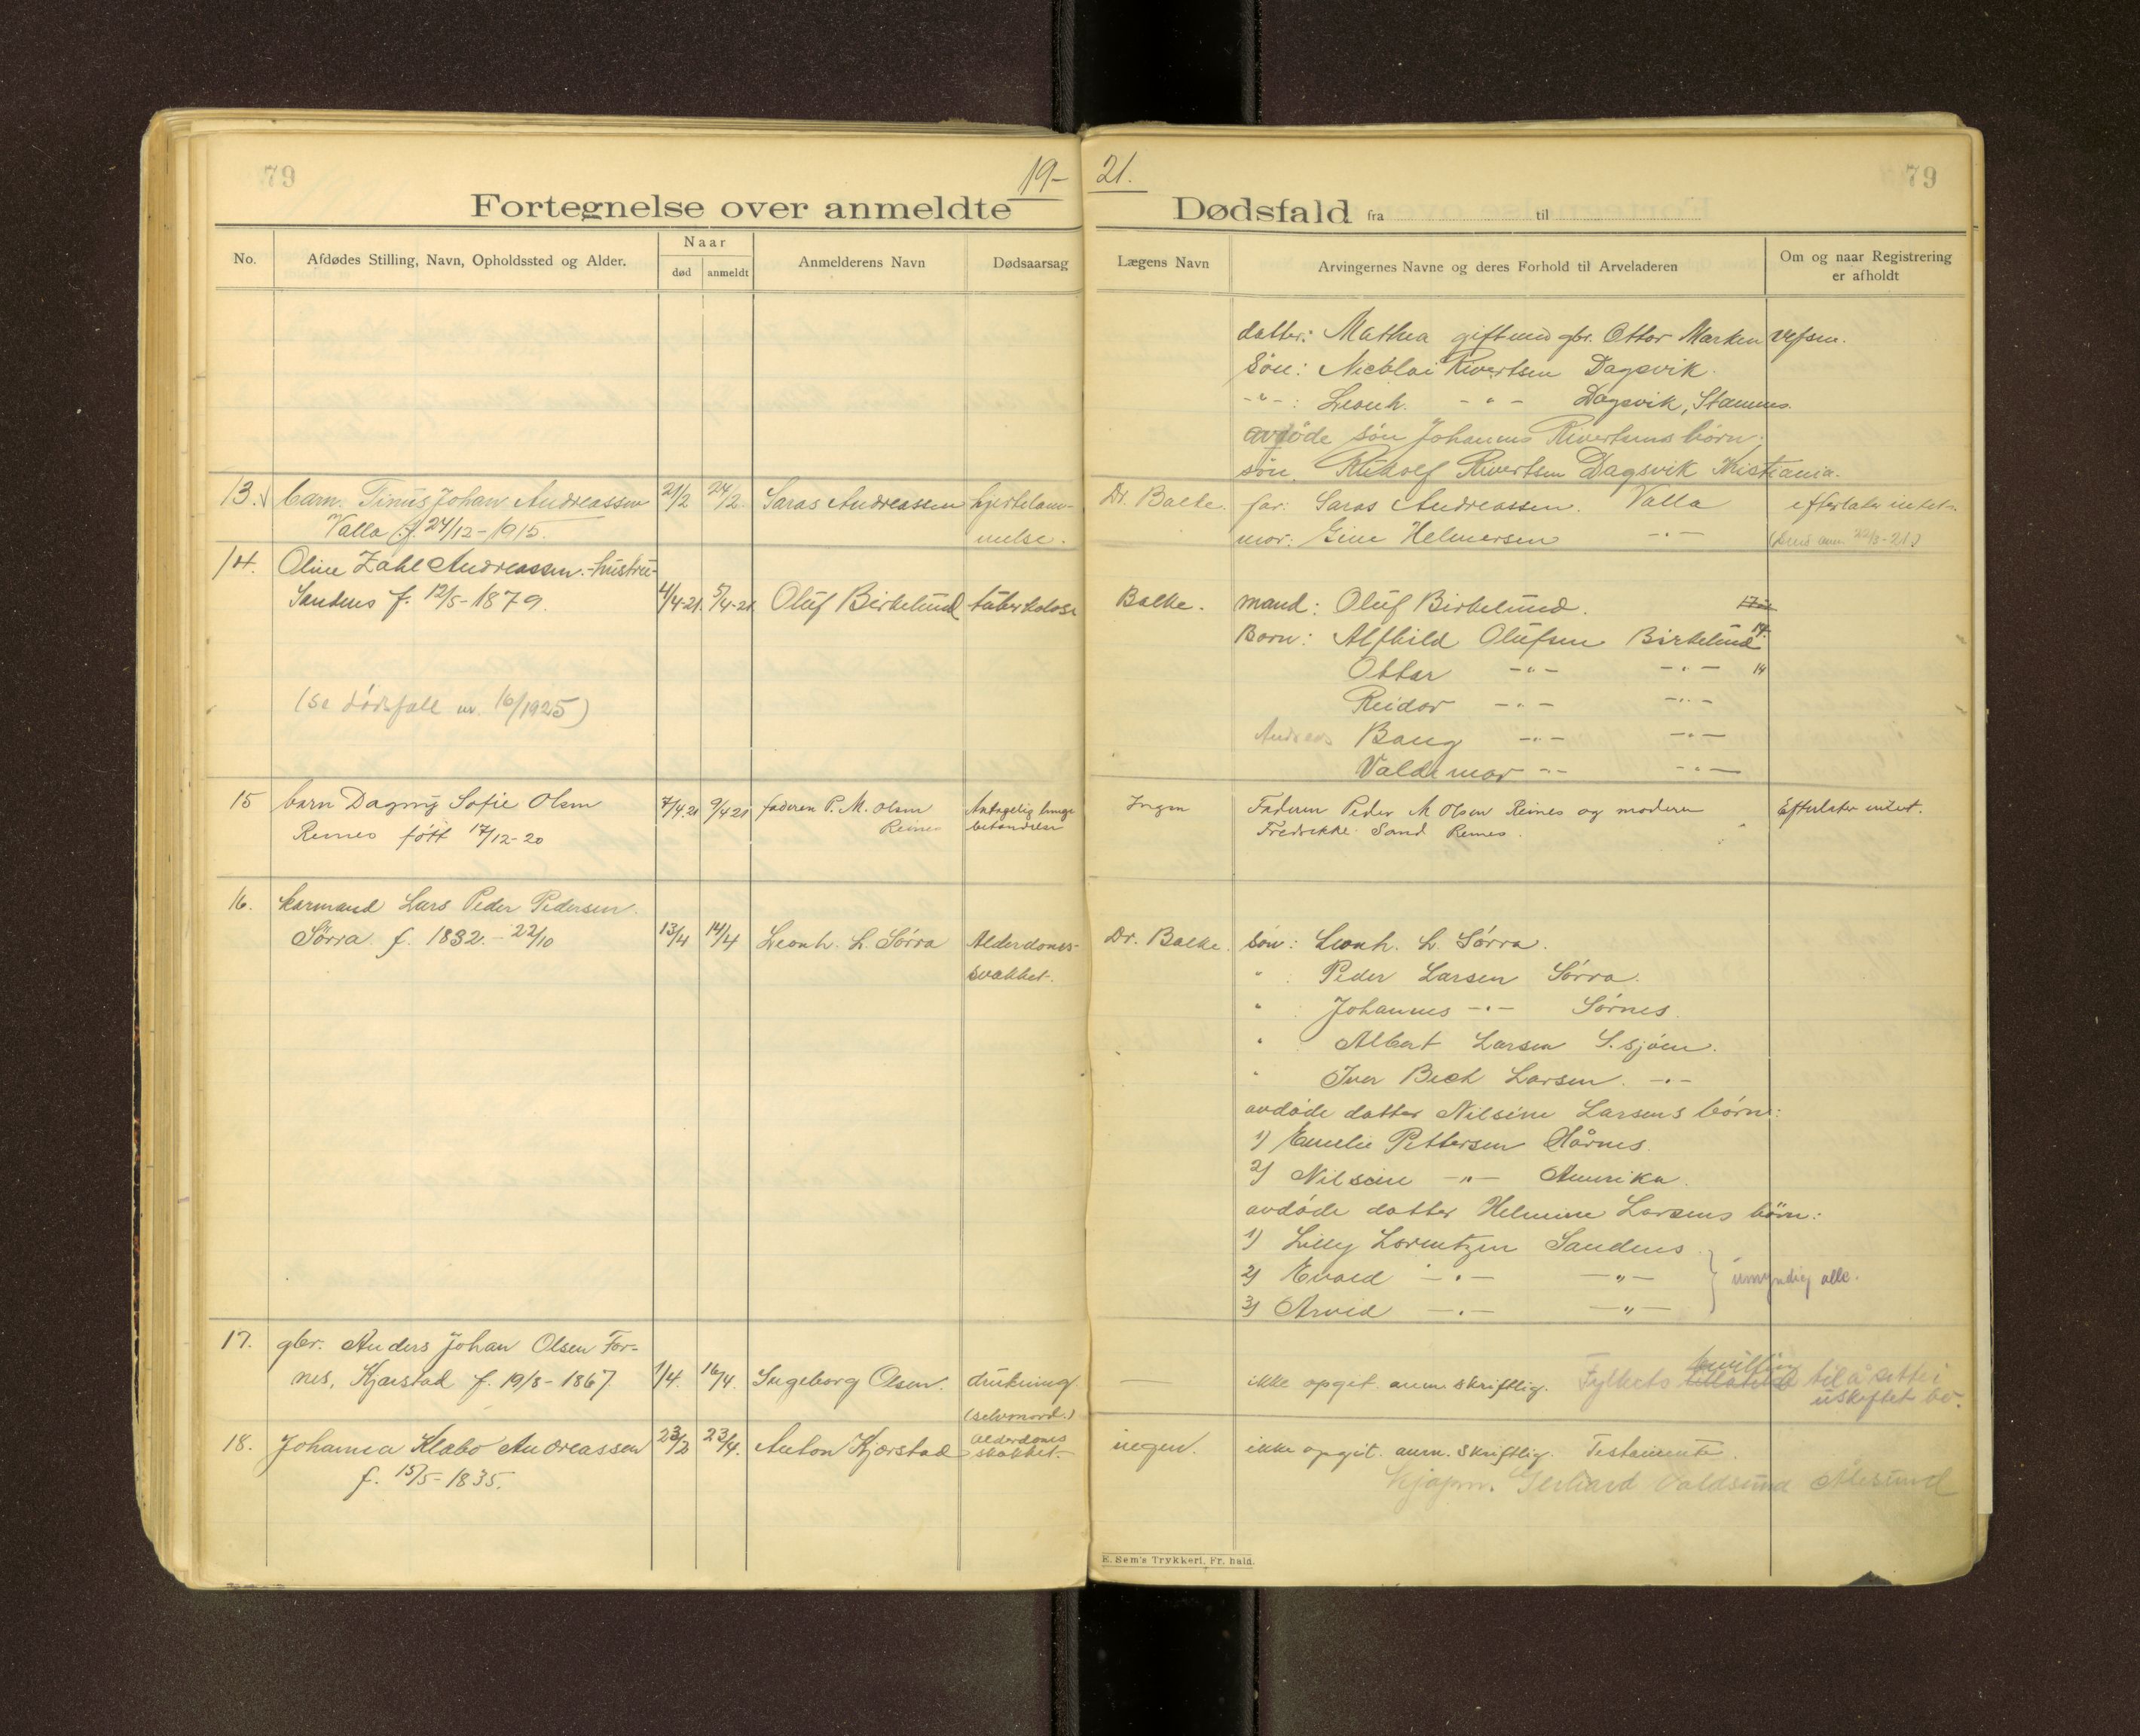 79
19-
21.
79
Fortegnelse over anmeldte
Dødsfald fra til
No.
Afdødes Stilling, Navn, Opholdssted og Alder.
Naar
død
anmeldt
Anmelderens Navn
Dødsaarsag
Lægens Navn
Arvingernes Navne og deres Forhold til Arveladeren
Om og naar Registrering
er afholdt
datter: Mathea gift med gbr. Ottar Marken Vefsen.
Søn: Nicolai Rivertsen Dagsvik.
-"-: Leonh. -"- Dagsvik, Stamnes.
avdøde søn Johannes Rivertsens børn:
søn. Rudolf Rivertsen Dagsvik Kristiania.
13. barn. Tinus Johan Andreassen 21/2 24/2. Saras Andreassen hjertelam-
Dr. Balke. far: Saras Andreassen. Valla efterlater intet.
Valla f. 24/12-1915. melse.
mor: Gine Helmersen -"- 22/3-21.)
14. Oline Zahl Andreassen.-hustru-
Sandnes f. 12/5-1879. 4/4-21. 5/4-21. Oluf Birkelund tuberkolose
Balke. mand: Oluf Birkelund.
Born: Alfhild Olufsen Birkelund 14.
Ottar -"- -"- 14
Reidar -"- -"-
(se dødsfall nr. 16/1925)
Andreas Bang -"- -"-
Valdemar -"- -"-
15 barn Dagny Sofie Olsen 7/4.21 9/4 21 faderen P. M. Olsen Antagelig lunge
Reines født 17/12-20 Reines betændelse
Ingen Faderen Peder M Olsen Reines og moderen Efterlater intet.
Fredrikke Sand Reines.
16. kaarmand Lars Peder Pedersen.
Sørra f. 1832.- 22/10 13/4 14/4 Leonh. L. Sørra Alderdoms-
svakhet.
Dr. Balke. søn: Leonh. L. Sørra.
" Peder Larsen Sørra.
" Johannes -"- Sørnes.
" Albert Larsen S.sjøen.
" Iver Bech Larsen. -"-
avdøde datter Nilsine Larsens børn:
1) Emelie Pettersen Hårnes.
2) Nilsine -"- Amerika.
avdøde datter Helmine Larsens børn:
1) Lilly Lorentzen Sandnes
2) Evald -"- -"- umyndig alle.
3) Arvid -"- -"-
17. gbr. Anders Johan Olsen For-
nes, Kjærstad f. 19/8-1867. 1/4. 16/4. Ingeborg Olsen. drukning
(selvmord.)
— ikke opgit. anm. skriftlig. Fylkets bevilling til å sitte i
uskiftet bo.
18. Johanna Klæbo Andreassen 23/2 23/4. Anton Kjærstad alderdoms
f. 15/5-1835. svakhet.
ingen. ikke opgit. anm. skriftlig. Testamente.
Kjøpm. Gerhard Valdsund Ålesund
E. Sem's Trykkeri, Fr.hald.